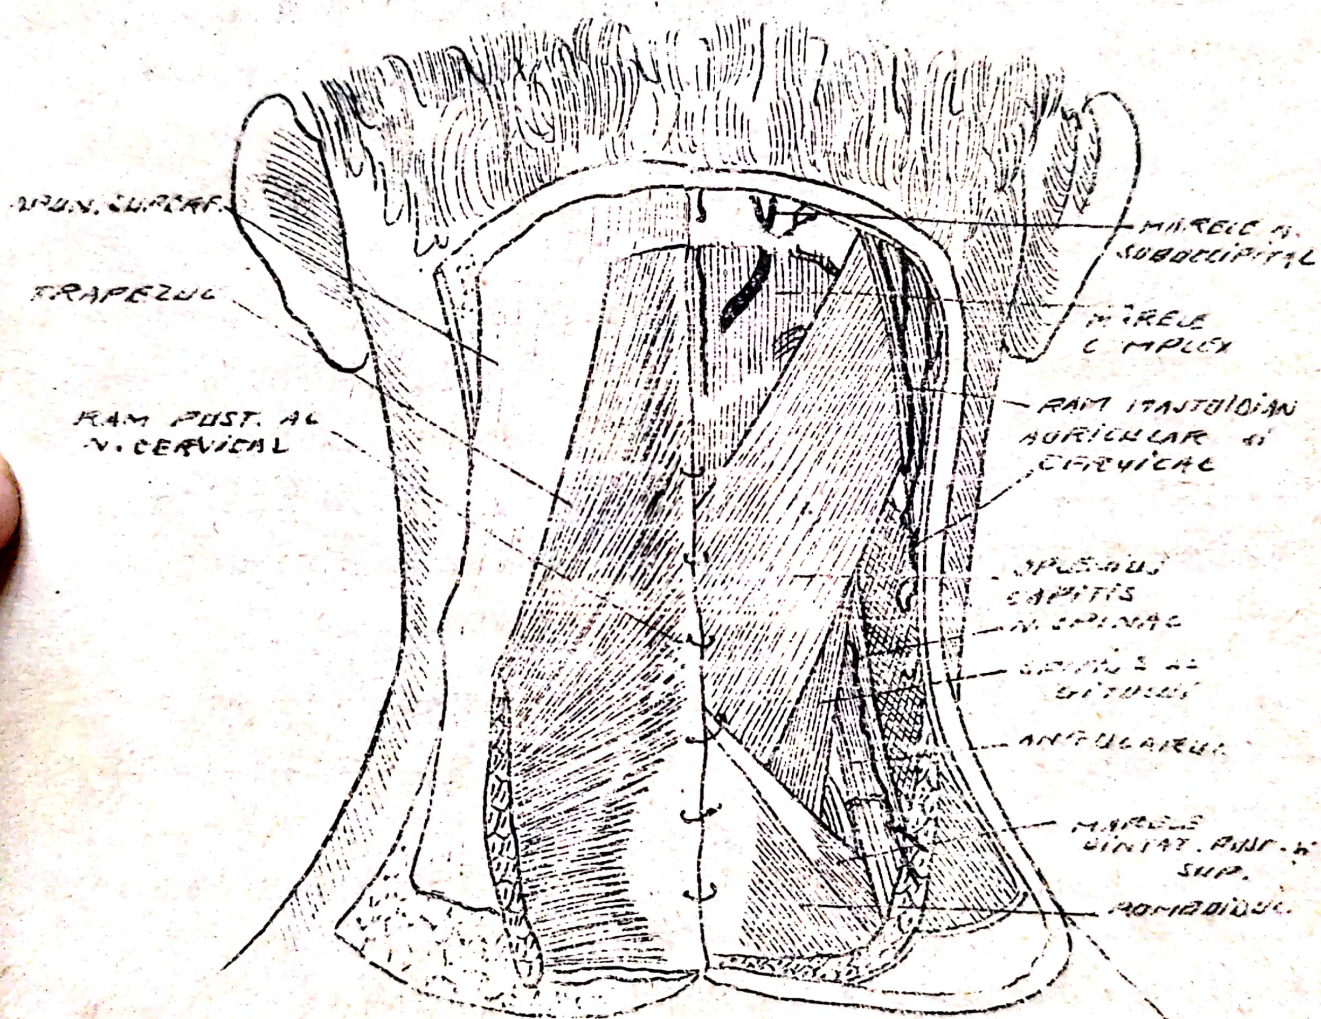 APON. SUPERF.
TRAPEZUL
RAM POST. AL
N. CERVICAL
MARELE N.
SUBOCCIPITAL
MARELE
C MPLEX
RAM MASTOIDIAN
AURICULAR
CERVICAL
SPLENIUS
CAPITIS
N. SPINAL
ANGULARUL
MARELE
DINTAT. POST.
SUP.
ROMBOIDUL